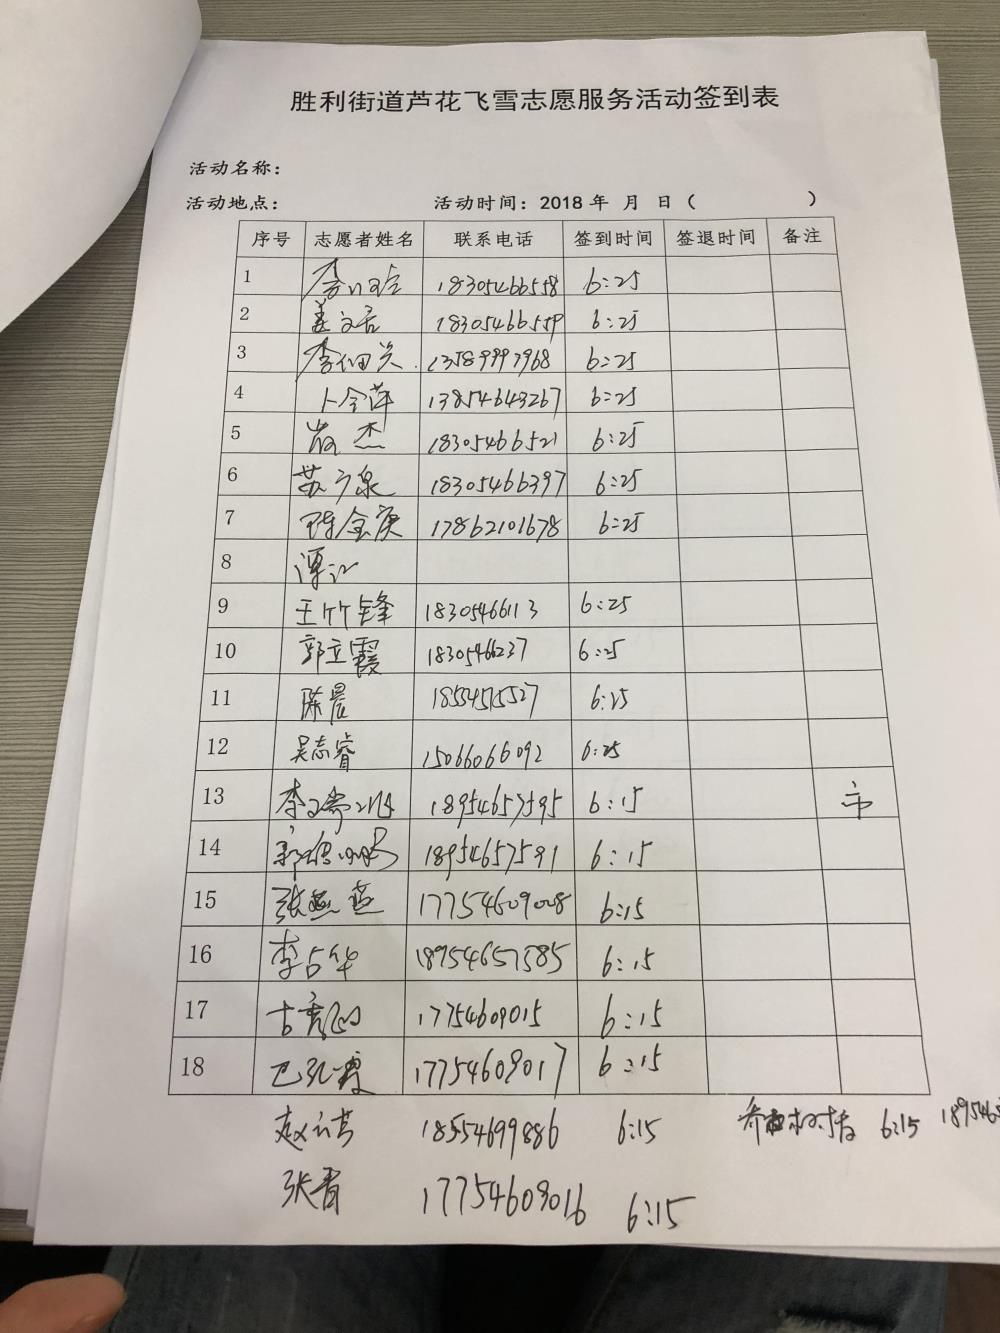 胜利街道芦花飞雪志愿服务活动签到表
活动名称：
活动地点： 活动时间：2018 年 月 日（ ）
序号 志愿者姓名 联系电话 签到时间 签退时间 备注
1 18305466558 6:25
2 姜文君 18305466559 6:25
3 13589997968 6:25
4 卜全萍 13854643267 6:25
5 杰 18305466521 6:25
6 苏广泉 18305466397 6:25
7 17862101678 6:25
8 谭江
9 王竹锋 18305466113 6:25
10 郭立霞 18305466237 6:25
11 陈晨 6:25
12 吴志睿 15066066092 6:25
13 18954657595 6:15 市
14 18954657591 6:15
15 张燕燕 17754609008 6:15
16 李占华 18954657585 6:15
17 17754609015 6:15
18 17754609017 6:15
18554699886 6:15 6:15 189546
张青 17754609016 6:15